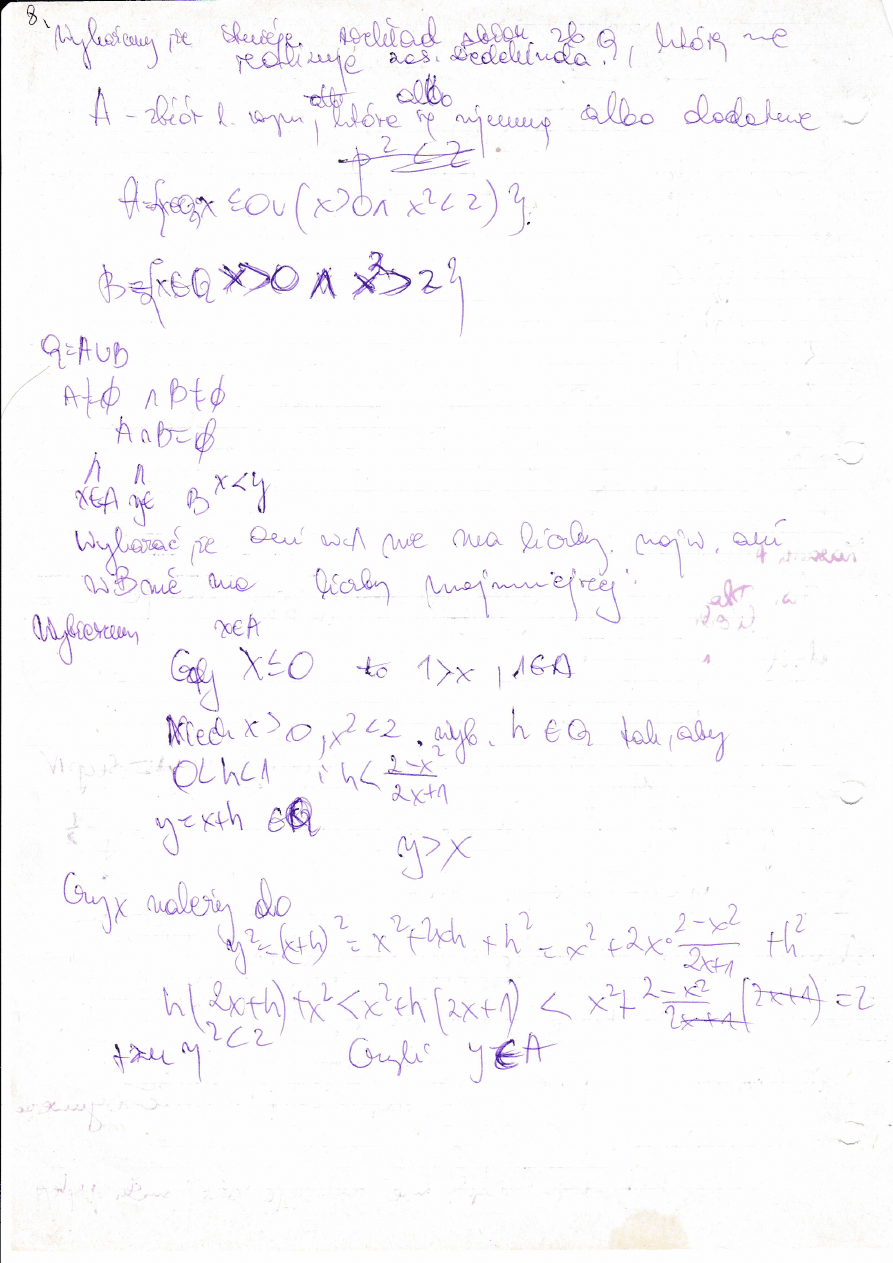 8.
Wykażemy że istnieje rozkład zbioru Q, który nie
realizuje zas. Dedekinda.
albo
A - zbiór l. wym, które są ujemne albo dodatnie
p² < 2
A={x∈Q; x ≤ 0 ∪ (x>0 ∧ x² < 2)}.
B={x∈Q x>0 ∧ x²>2}
Q=A∪B
A≠∅ ∧ B≠∅
A∩B=∅
∧ ∧
x∈A y∈ B x<y
Wykazać że ani w A nie ma liczby. najw. ani
w B nie ma liczby najmniejszej.
Wybieramy x∈A
Gdy x≤0 to 1>x, 1∈A
Niech x>0, x²<2. wyb. h ∈ Q tak, aby
0<h<1 i h< \frac{2-x²}{2x+1}
y=x+h ∈Q
y>x
Czy x należy do
y²=(x+h)² = x²+2xh + h² = x² + 2x·\frac{2-x²}{2x+1} + h²
h(2x+h)+x² < x²+h(2x+1) < x²+\frac{2-x²}{2x+1}(2x+1) = 2
tzn y²<2 Czyli y∈A